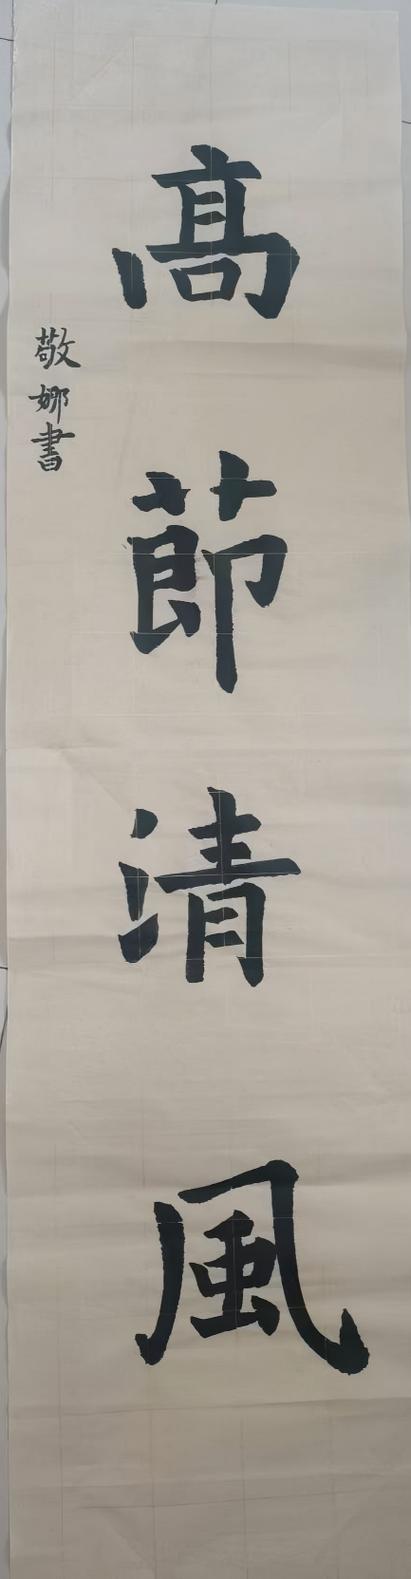 高節清風
敬娜書